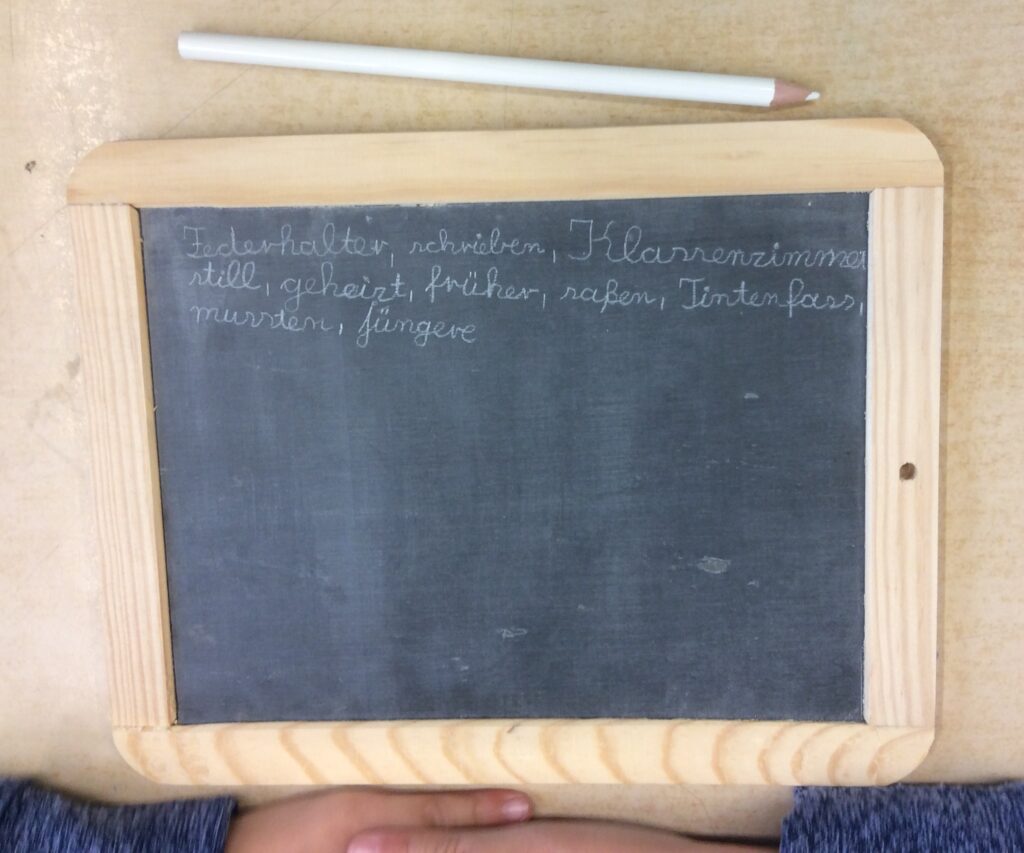 Federhalter, schrieben, Klassenzimmer
still, geheizt, früher, saßen, Tintenfass,
mussten, jüngere